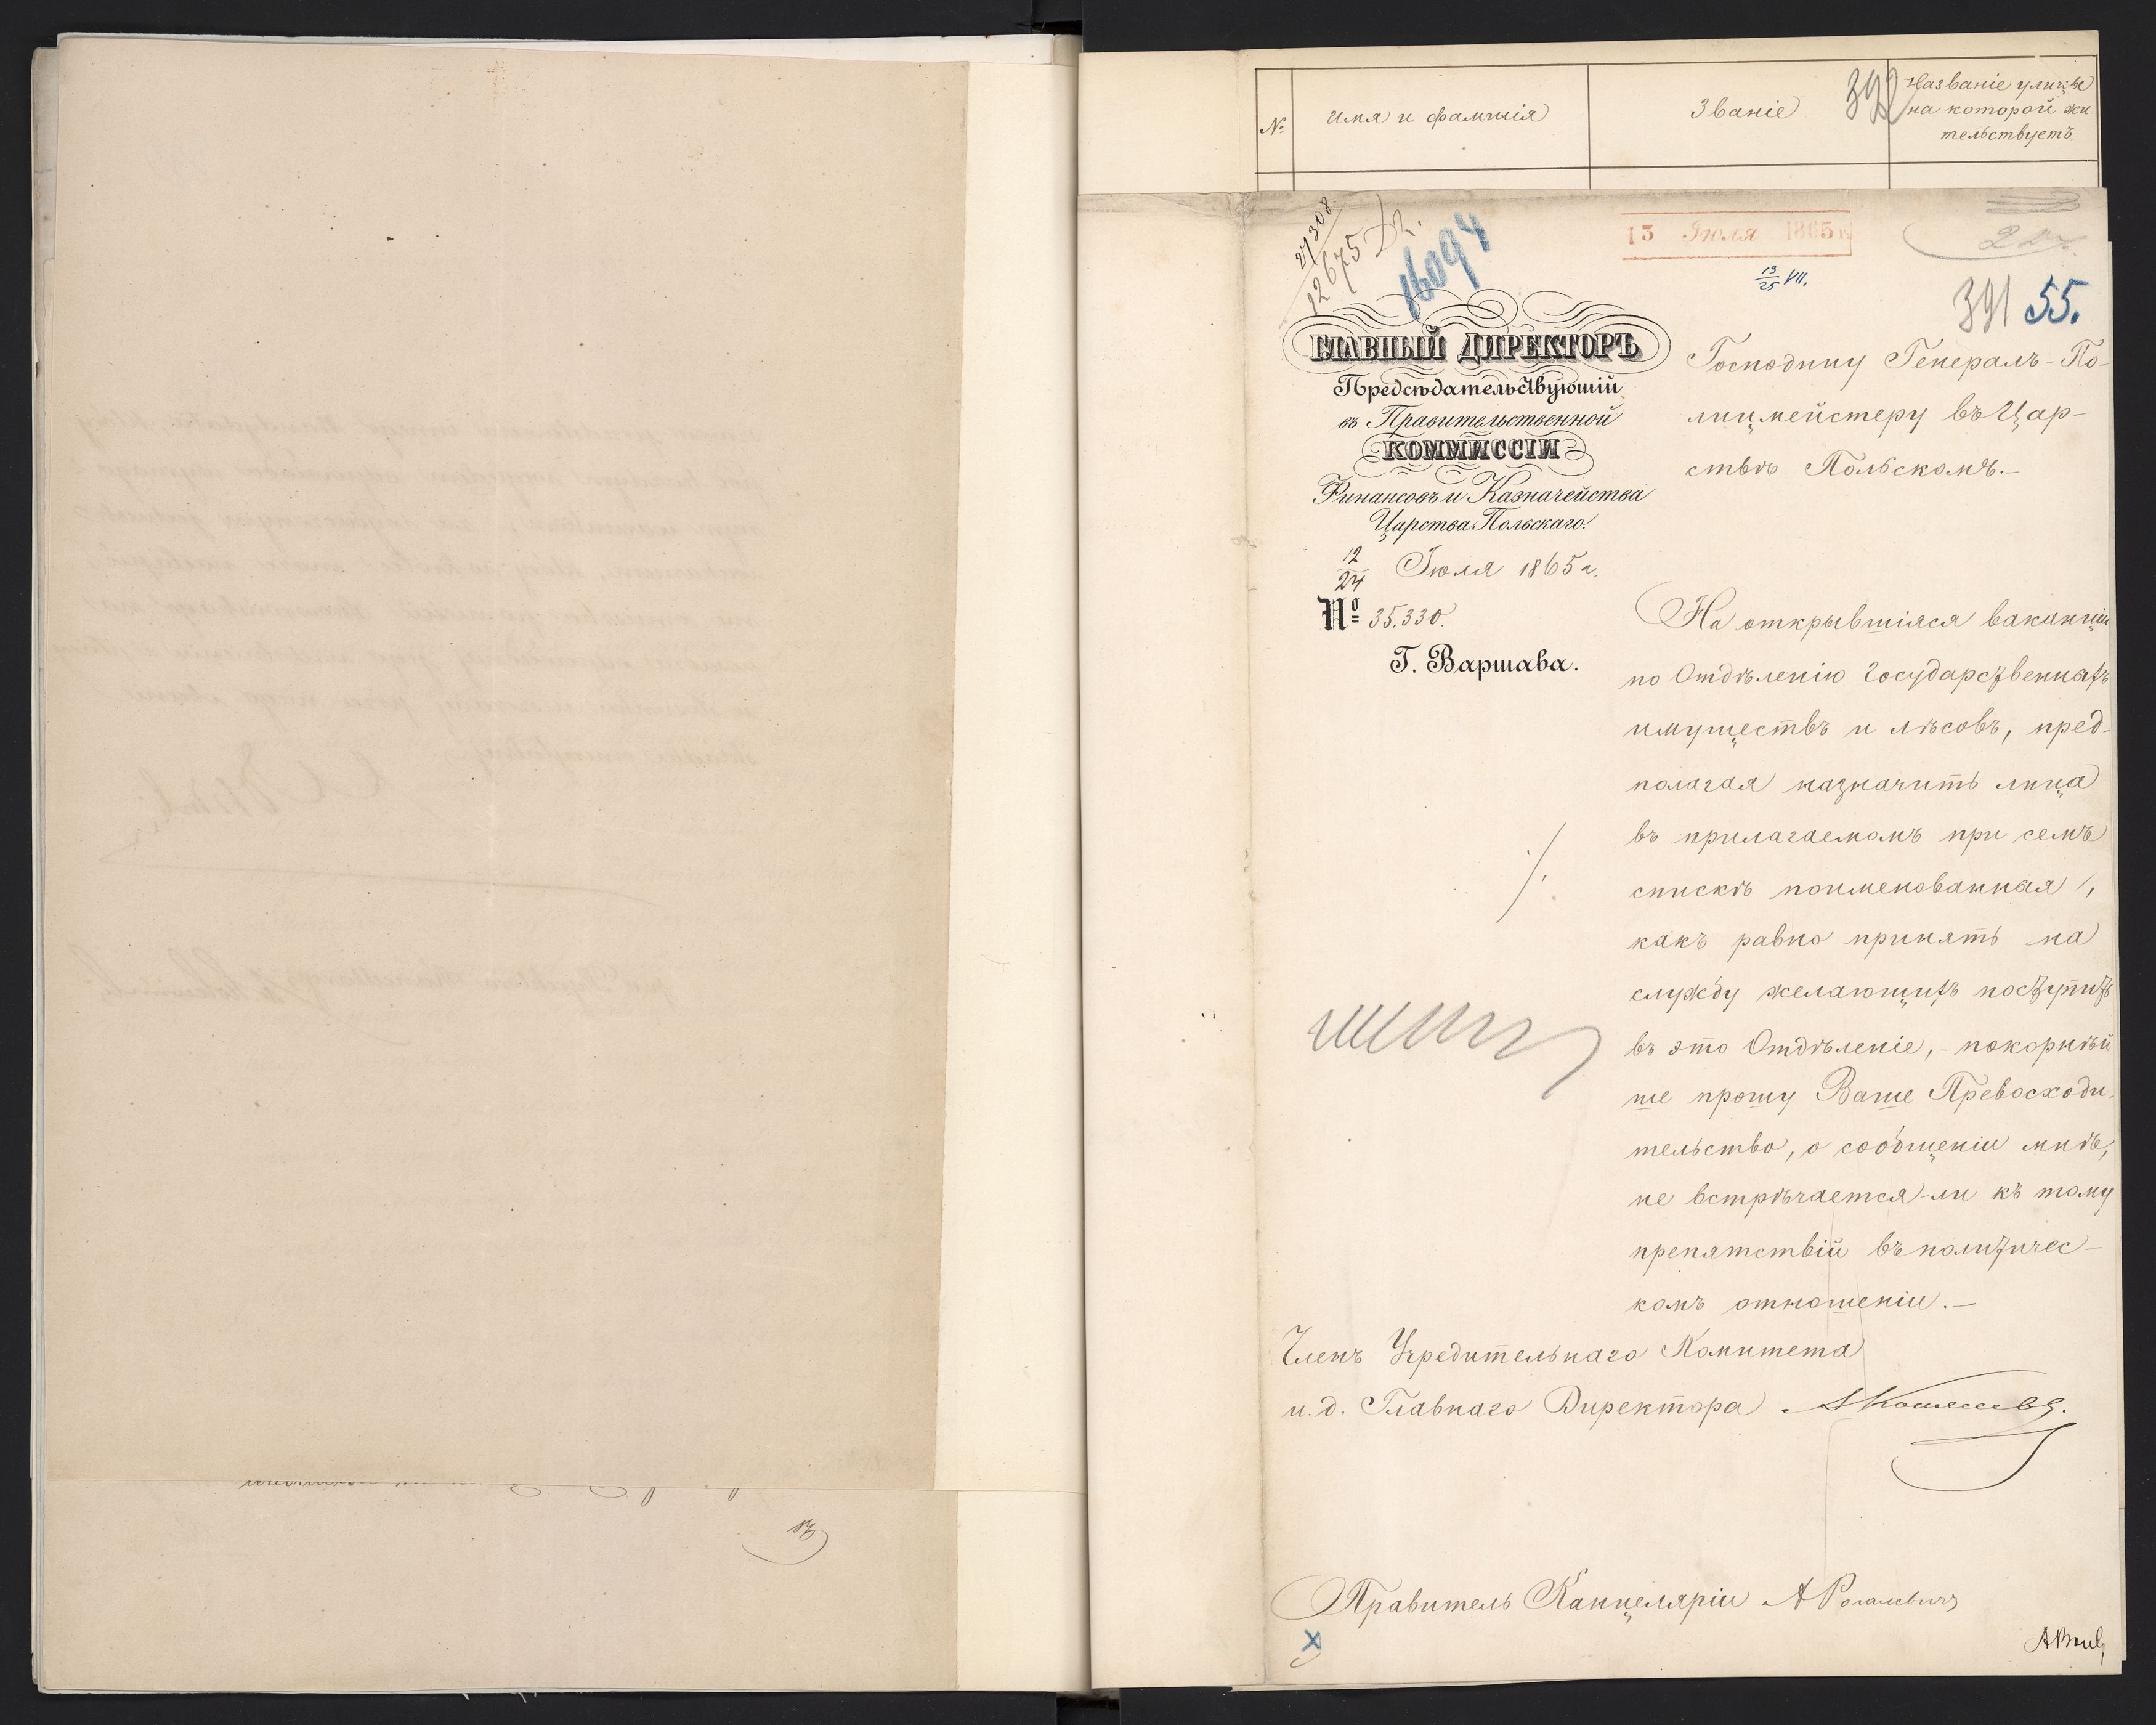 №
Имя и фамилія
Званіе
392
Названіе улицы
на которой жи
тельствуетъ.
27308
12675
16094
13 Іюля 1865 г.
13/25 VII.
391 55.
ГЛАВНЫЙ ДИРЕКТОРЪ
Предсѣдательствующій
въ Правительственной
КОММИССІИ
Финансовъ и Казначейства
Царства Польскаго.
12/24 Іюля 1865 г.
№ 35.330.
Г. Варшава.
Господину Генералъ-По-
лицмейстеру въ Цар-
ствѣ Польскомъ.—
На открывшіяся вакансіи
по Отдѣленію Государственныхъ
имуществъ и лѣсовъ, пред-
полагая назначить лица
въ прилагаемомъ при семъ
спискѣ поименованная,
какъ равно принять на
службу желающихъ поступить
въ это Отдѣленіе, - покорнѣй
ше прошу Ваше Превосходи-
тельство, о сообщеніи мнѣ,
не встрѣчается-ли къ тому
препятствій въ политичес-
комъ отношеніи.—
Членъ Учредительнаго Комитета
и. д. Главнаго Директора АКошелевъ.
Правитель Канцеляріи А